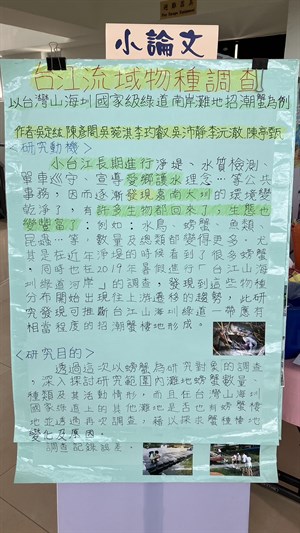 小論文
台江流域物種調查
以台灣山海圳國家級綠道南岸灘地招潮蟹為例
<研究動機>
小台江長期進行淨堤、水質檢測、
單車巡守、宣導愛鄉護水理念…等公共
事務，因而逐漸發現嘉南大圳的環境變
乾淨了，有許多生物都回來了；生態也
變豐富了：例如：水鳥、螃蟹、魚類、
昆蟲…等，數量及種類都變得更多。尤
其是在近年淨堤的時候看到了很多螃蟹
，同時也在2019年暑假進行「台江山海
圳綠道河岸」的調查，發現到這些物種
分布開始出現往上游遷移的趨勢，此研
究發現可推斷台江山海圳綠道一帶應有
相當程度的招潮蟹棲地形成。
<研究目的>
透過這次以螃蟹為研究對象的調查
，深入探討研究範圍內灘地螃蟹數量、
種類及其活動情形，而且在台灣山海圳
國家綠道上的其他灘地是否也有螃蟹棲
地並透過再次調查，藉以探求蟹種棲地
變化及原因。
調查記錄